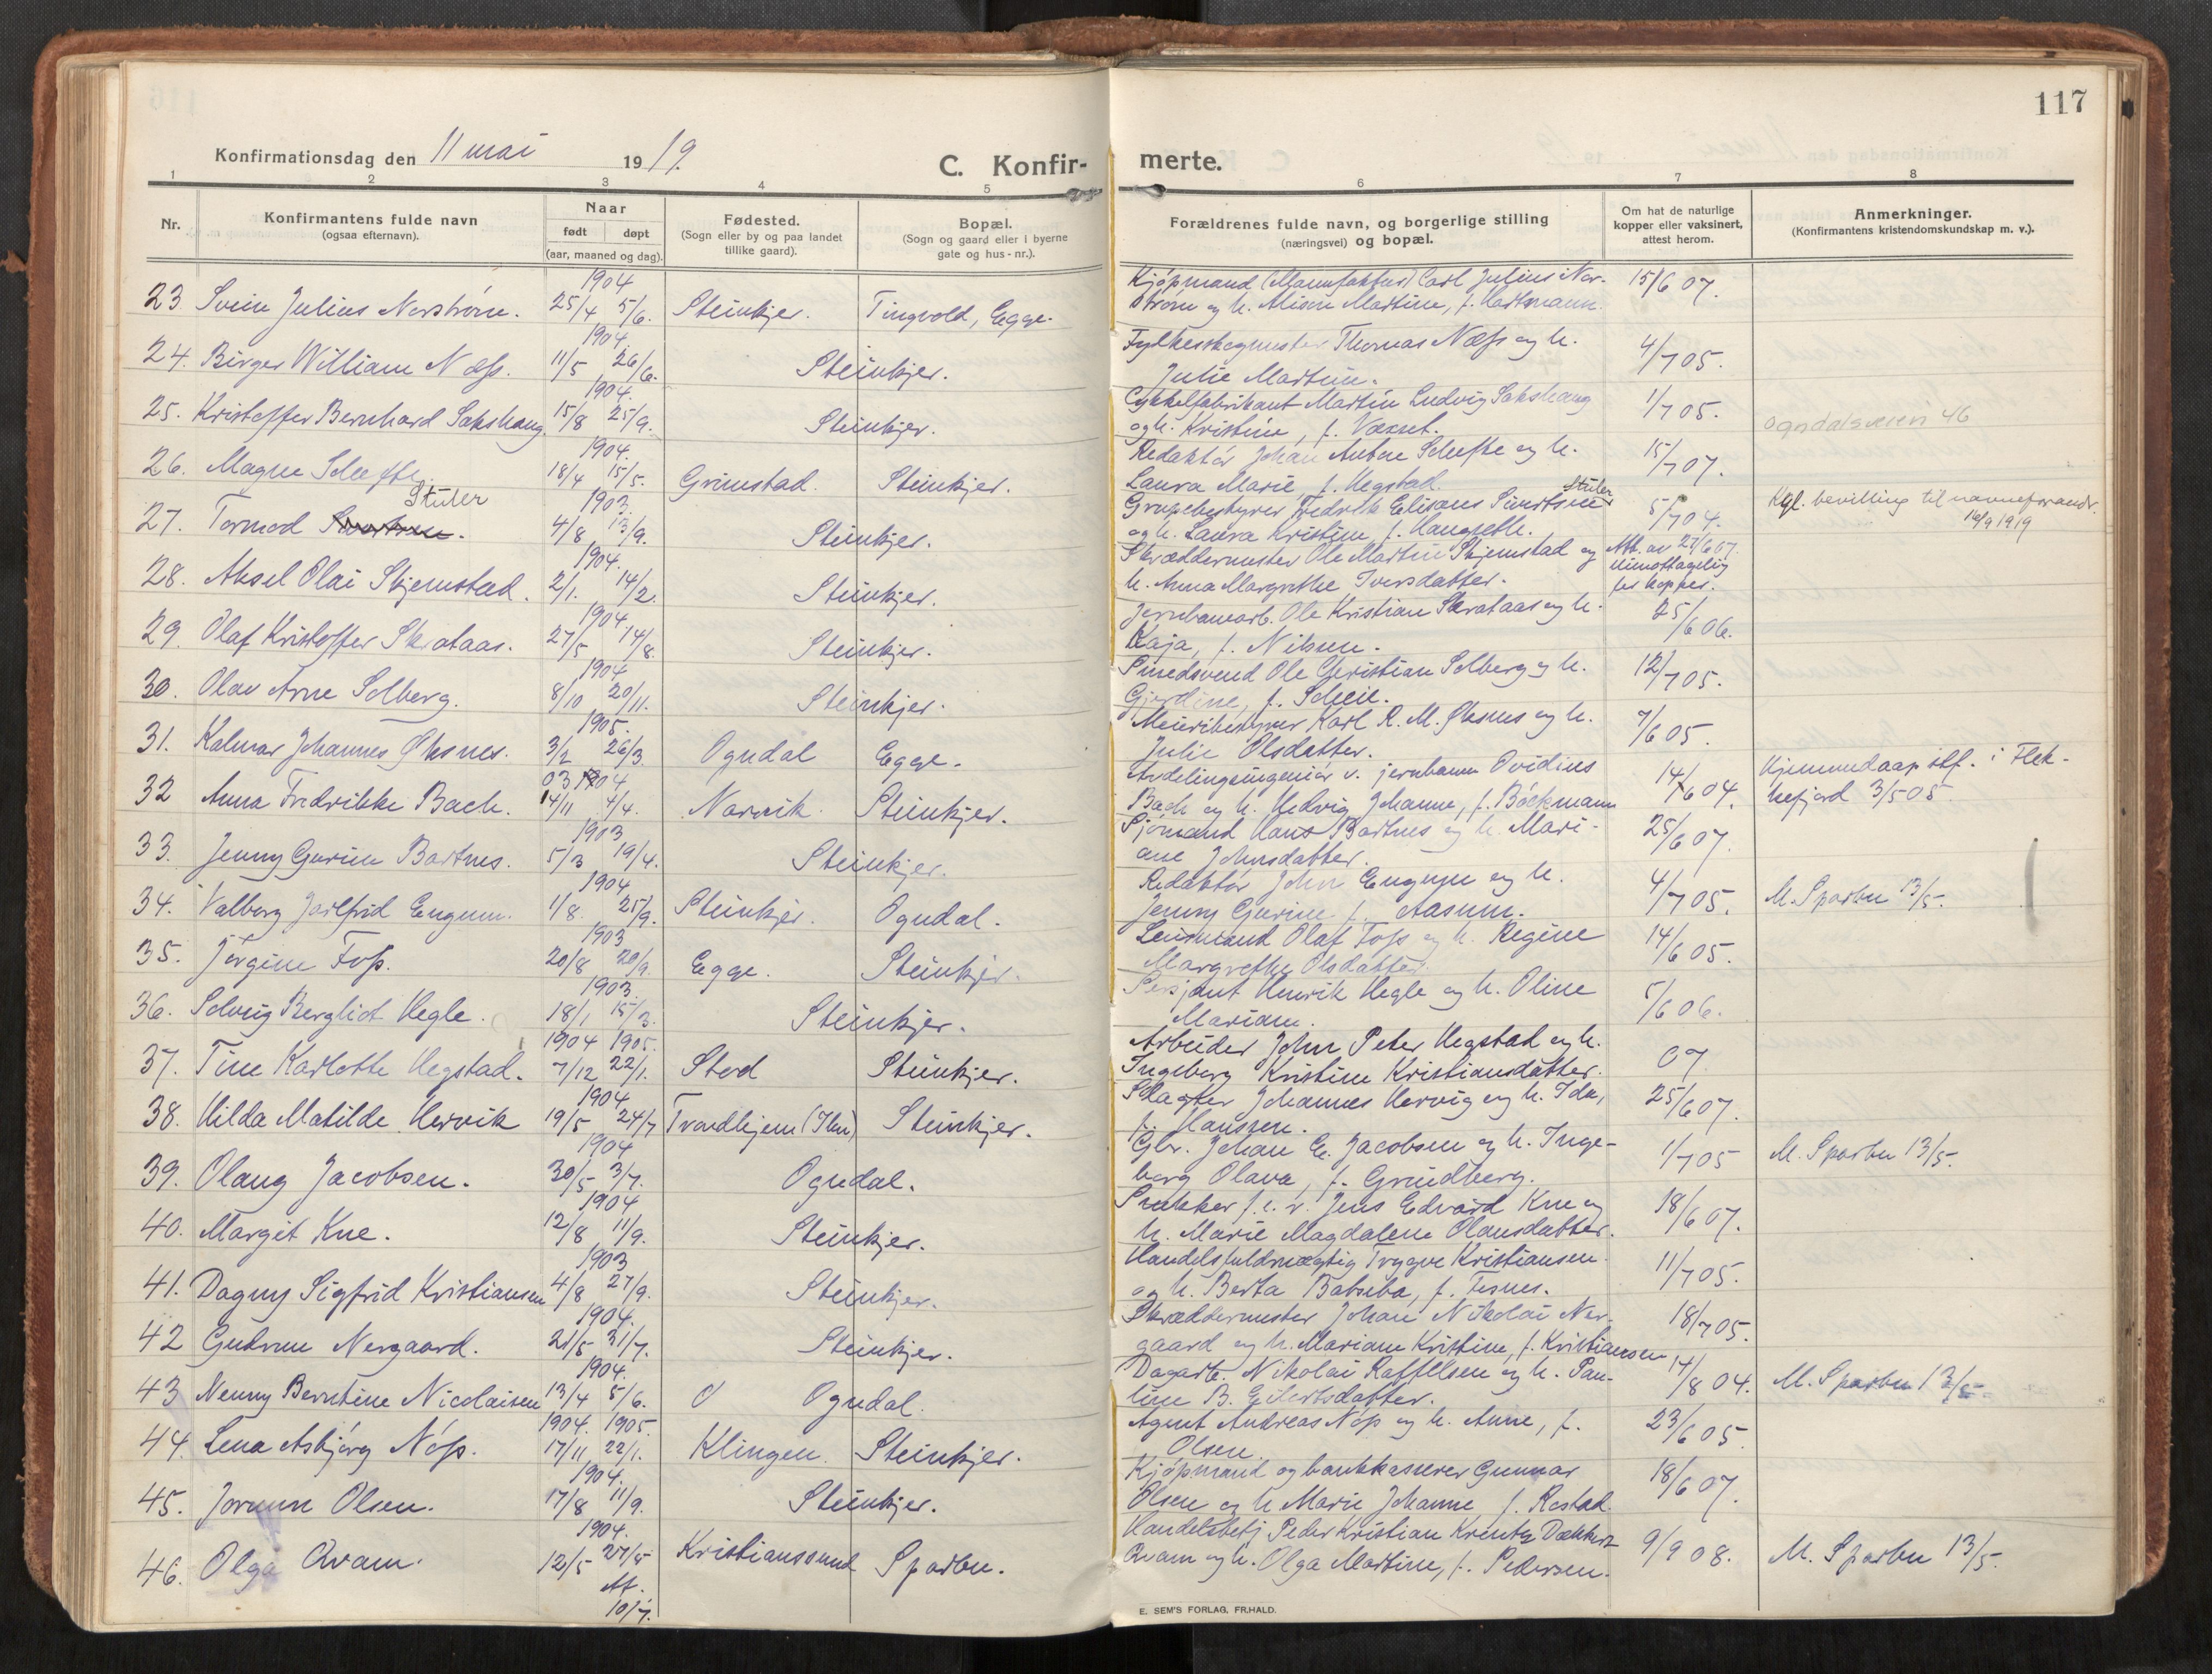 117
Konfirmationsdag den 11 mai 1919.
C. Konfirmerte.
1 2 3 4 5 6 7 8
Nr.
Konfirmantens fulde navn
(ogsaa efternavn).
Naar
født døpt
(aar, maaned og dag).
Fødested.
(Sogn eller by og paa landet
tillike gaard).
Bopæl.
(Sogn og gaard eller i byerne
gate og hus-nr.).
Forældrenes fulde navn, og borgerlige stilling
(næringsvei) og bopæl.
Om hat de naturlige
kopper eller vaksinert,
attest herom.
Anmerkninger.
(Konfirmantens kristendomskundskap m. v.).
1904
23 Svein Julius Norstrøm. 25/4 5/6. Steinkjer. Tingvold, Egge. Kjøpmand (Manufaktur) Carl Julius Nor- 15/6 07.
strøm og h. Martine, f. Hartmann.
1904.
24. Birger William Næss. 11/5 26/6. Steinkjer. Fylkesskogmester Thomas Næss og h. 4/7 05.
Julie Martine.
1904.
25. Kristoffer Bernhard Sakshaug. 15/8 25/9. Steinkjer. Cykkelfabrikant Martin Ludvig Sakshaug 1/7 05. Ogndalsveien 46
og h. Kristine, f. Væxset.
1904.
26. Magne Schefte 18/4 15/5. Grimstad. Steinkjer. Redaktør Johan Anton Schefte og h. 15/7 07.
Laura Marie, f. Hegstad.
Stüler 1903. Stüler
27. Tormod 4/8 13/9. Steinkjer. Grubebestyrer Fredrik Elisæus 5/7 04. Kgl. bevilling til navneforandr.
og h. Laura Kristine f. Haugseth. 16/9 1919
1904.
28. Aksel Olai Skjemstad. 2/1. 14/2. Steinkjer. Skræddermester Ole Martin Skjemstad og Att. av 27/6 07.
h. Anna Margrethe Iversdatter. uimottagelig
for kopper.
1904.
29. Olaf Kristoffer Skrataas. 27/5 14/8. Steinkjer. Jernbanearb. Ole Kristian Skrataas og h. 25/6 06.
Kaja, f. Nilsen.
1904
30. Olav Arne Solberg. 8/10 20/11. Steinkjer. Smedsvend Ole Christian Solberg og h. 12/7 05.
Gjerdine, f. Scheie.
1905.
31. Kalmar Johannes Øksnes. 3/2 26/3. Ogndal Egge. Meieribestyrer Karl R. M. Øksnes og h. 7/6 05.
Julie Olsdatter.
03 1904
32 Anna Fredrikke Bach. 14/11 4/4. Narvik. Steinkjer. Avdelingsingeniør v. jernbanen Ovidius 14/6 04. Hjemmedaap stf. i Flek-
Bach og h. Hedvig Johanne, f. Böckmann kefjord 3/5 05
1903
33. Jenny Gurine Bartnes. 5/3 19/4. Steinkjer. Sjømand Hans Bartnes og h. Mari- 25/6 07.
ane Johnsdatter.
1904.
34. Valborg Jarlfrid Engum. 1/8. 25/9. Steinkjer. Ogndal. Redaktør John Engum og h. 4/7 05. M. Sparbu 13/5.
Jenny Gurine f. Aasum.
1903
35. Jørgine Foss. 20/8 20/9. Egge. Steinkjer. Lensmand Olaf Foss og h. Regine 14/6 05.
Margrethe Olsdatter.
1903.
36. Solveig Bergliot Hegle. 18/1 15/3. Steinkjer. Sersjant Henrik Hegle og h. Oline 5/6 06.
Mariane.
1904 1905.
37. Tine Karlotte Hegstad. 7/12 22/1. Stod Steinkjer. Arbeider John Peter Hegstad og h. 07
Ingeborg Kristine Kristiansdatter.
1904
38. Hilda Matilde Hervik 19/5 24/7 Trondhjem (Ihlen) Steinkjer. Slagter Johannes Hervig og h. Ida, 25/6 07.
f. Hanssen.
1904
39. Olaug Jacobsen. 30/5 3/7. Ogndal. Gbr. Johan E. Jacobsen og h. Inge- 1/7 05 M. Sparbu 13/5.
borg Olava, f. Grundberg.
1904
40. Margit Kne. 12/8 11/9. Steinkjer. Snekker f.e.v. Jens Edvard Kne og 18/6 07.
h. Marie Magdalene Olausdatter.
1903
41. Dagny Sigfrid Kristiansen 4/8 27/9. Steinkjer. Handelsfuldmægtig Trygve Kristiansen 11/7 05.
og h. Berta Batseba, f. Fisnes.
1904.
42 Gudrun Nergaard. 21/5 31/7. Steinkjer. Skræddermester Johan Nikolai Ner- 18/7 05.
gaard og h. Mariane Kristine, f. Kristiansen
1904.
43 Nenny Berntine Nicolaisen 13/4 5/6. O Ogndal. Dagarb. Nikolai Raffelsen og h. Pau- 14/8 04. M. Sparbu 13/5
line B. Eilertsdatter.
1904. 1905.
44. Lena Asbjørg Nöss. 17/11 22/1. Klingen. Steinkjer. Agent Andreas Nöss og h. Anne, f. 23/6 05.
Olsen.
1904.
45. Jorunn Olsen. 17/8 11/9. Steinkjer. Kjøpmand og bankkasserer Gunnar 18/6 07.
Olsen og h. Marie Johanne f. Rostad.
1904.
46. Olga Qvam. 12/5 27/5 Kristianssund Sparbu. Handelsbetj Peder Kristian Kreutz 9/9 08. M. Sparbu 13/5.
st. Qvam og h. Olga Martine, f. Pedersen.
10/7.
E. SEM'S FORLAG, FR.HALD.